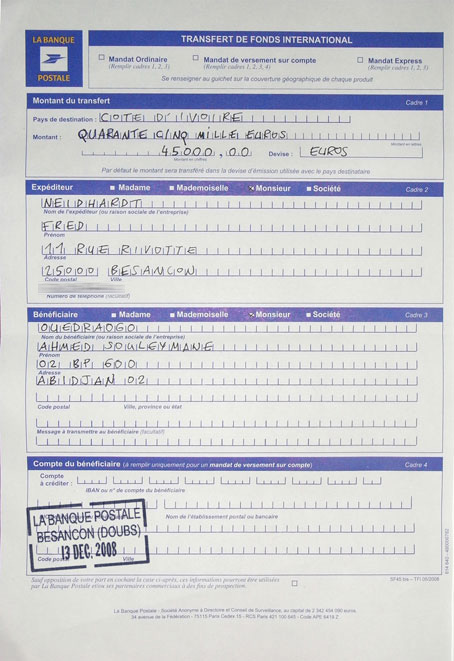 LA BANQUE
POSTALE
TRANSFERT DE FONDS INTERNATIONAL
Mandat Ordinaire
(Remplir cadres 1, 2, 3)
Mandat de versement sur compte
(Remplir cadres 1, 2, 3, 4)
Mandat Express
(Remplir cadres 1, 2, 3)
Se renseigner au guichet sur la couverture géographique de chaque produit
Montant du transfert Cadre 1
Pays de destination : COTE D'IVOIRE
Montant : QUARANTE CINQ MILLE EUROS
Montant en lettres
45000,00 Devise : EUROS
Montant en chiffres
Par défaut le montant sera transféré dans la devise d'émission utilisée avec le pays destinataire
Expéditeur Madame Mademoiselle Monsieur Société Cadre 2
NEIDHARDT
Nom de l'expéditeur (ou raison sociale de l'entreprise)
FRED
Prénom
11 RUE RIVOTTE
Adresse
25000 BESANCON
Code postal Ville
Numéro de téléphone (facultatif)
Bénéficiaire Madame Mademoiselle Monsieur Société Cadre 3
OUEDRAOGO
Nom du bénéficiaire (ou raison sociale de l'entreprise)
AHMED SOULEYMANE
Prénom
02 BP 600
Adresse
ABIDJAN 02
Code postal Ville, province ou état
Message à transmettre au bénéficiaire (facultatif)
Compte du bénéficiaire (à remplir uniquement pour un mandat de versement sur compte) Cadre 4
Compte
à créditer :
IBAN ou n° de compte du bénéficiaire
Nom de l'établissement postal ou bancaire
LA BANQUE POSTALE
BESANCON (DOUBS)
13 DEC. 2008
Code postal Ville
Sauf opposition de votre part en cochant la case ci-après, ces informations pourront être utilisées
par La Banque Postale et/ou ses partenaires commerciaux à des fins de prospection.
La Banque Postale - Société Anonyme à Directoire et Conseil de Surveillance, au capital de 2 342 454 090 euros.
34 avenue de la Fédération - 75115 Paris Cedex 15 - RCS Paris 421 100 645 - Code APE 6419 Z